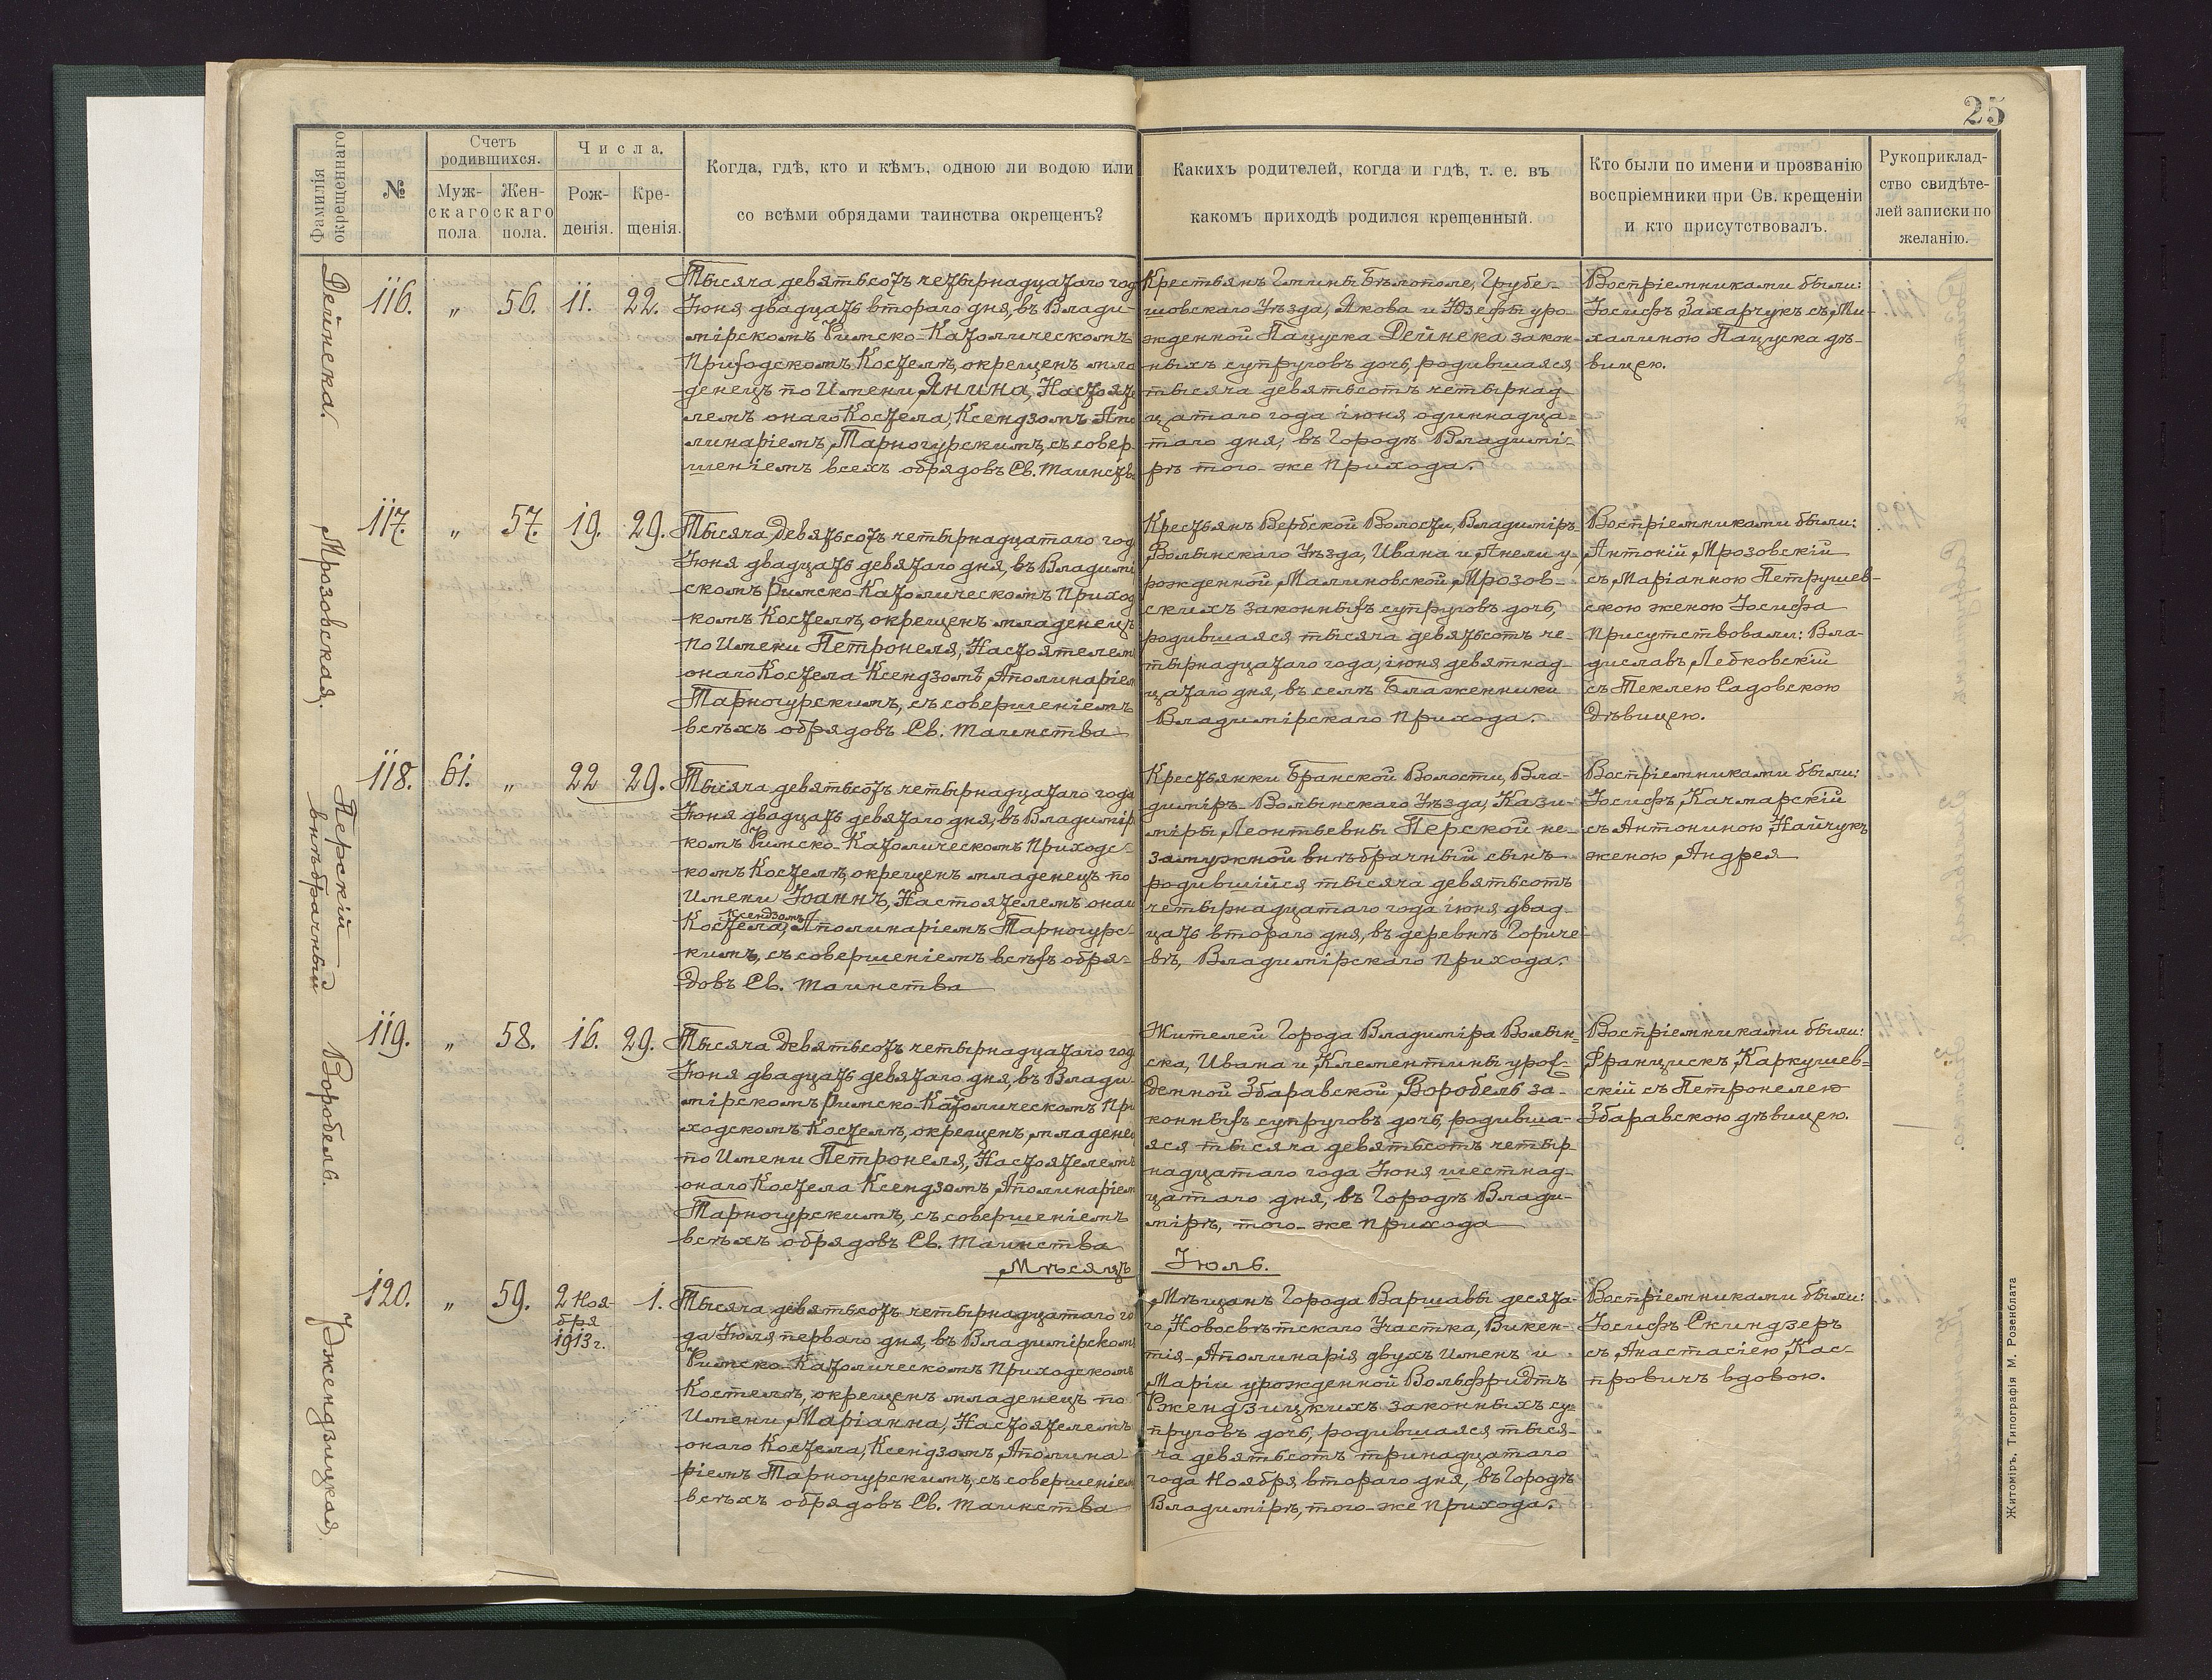 25
Фамилія окрещеннаго.
№
Счетъ родившихся.
Муж-
скаго
пола.
Жен-
скаго
пола.
Числа.
Рож-
денія.
Кре-
щенія.
Когда, гдѣ, кто и кѣмъ, одною ли водою или
со всѣми обрядами таинства окрещенъ?
Какихъ родителей, когда и гдѣ, т. е. въ
какомъ приходѣ родился крещенный.
Кто были по имени и прозванію
воспріемники при Св. крещеніи
и кто присутствовалъ.
Рукоприклад-
ство свидѣте-
лей записки по
желанію.
Дейнека.
116. „ 56. 11. 22.
Тысяча девятьсотъ четырнадцатаго год
Іюня двадцать втораго дня, въ Влади-
мірскомъ Римско-Католическомъ
Приходскомъ Костелѣ, окрещенъ мла
денецъ по Имени Янина, Настояте
лемъ онаго Костела, Ксендзомъ Апо
линаріемъ Тарногурскимъ, съ совер
шеніемъ всехъ обрядовъ Св. Таинств
Крестьянъ Гмины Бѣлополе, Грубе-
шовскаго Уѣзда, Якова и Юзефы уро-
жденной Пацуска Дейнека закон-
ныхъ супруговъ дочь, родившаяся
тысяча девятьсотъ четырнад-
цатаго года іюня одиннадца-
таго дня, въ Городѣ Владимі-
рѣ того-же прихода.
Воспріемниками были:
Іосифъ Захарчукъ съ Ми-
халиною Пацуска дѣ-
вицею.
Мрозовская.
117. „ 57. 19. 29.
Тысяча девятьсотъ четырнадцатаго год
Іюня двадцать девятаго дня, въ Владимі
скомъ Римско-Католическомъ Приход
комъ Костелѣ, окрещенъ младенецъ
по Имени Петронеля, Настоятелем
онаго Костела Ксендзомъ Аполинаріем
Тарногурскимъ, съ совершеніемъ
всѣхъ обрядовъ Св. Таинства
Крестьянъ Вербской Волости, Владиміръ
Волынскаго Уѣзда, Ивана и Анели у-
рожденной Малиновской, Мрозов-
скихъ законныхъ супруговъ дочь,
родившаяся тысяча девятьсотъ че-
тырнадцатаго года, іюня девятнад-
цатаго дня, въ селѣ Блаженники
Владимірскаго Прихода.
Воспріемниками были:
Антоній Мрозовскій
съ Маріанною Петрушев-
скою женою Іосифа
Присутствовали: Вла-
диславъ Лебковскій
съ Теклею Садовскою
Дѣвицею.
Перскій
внѣбрачный
118. 61. „ 22 29.
Тысяча девятьсотъ четырнадцатаго года
Іюня двадцать девятаго дня, въ Владимір
комъ Римско-Католическомъ Приходс-
комъ Костелѣ, окрещенъ младенецъ по
Имени Іоаннъ, Настоятелемъ онаг
Ксендзомъ
Костела, Аполинаріемъ Тарногурс-
кимъ, съ совершеніемъ всѣхъ обря-
довъ Св. Таинства
Крестьянки Бранской Волости, Вла-
диміръ-Волынскаго Уѣзда, Кази-
міры Леонтьевны Перской не-
замужной внѣбрачный сынъ
родившійся тысяча девятьсотъ
четырнадцатаго года іюня двад-
цать втораго дня, въ деревнѣ Горичe
вѣ, Владимірскаго Прихода.
Воспріемниками были:
Іосифъ Качмарскій
съ Антониною Найчукъ
женою Андрея
Воробель.
119. „ 58. 16. 29.
Тысяча девятьсотъ четырнадцатаго год
Іюня двадцать девятаго дня, въ Влади-
мірскомъ Римско-Католическомъ При
ходскомъ Костелѣ, окрещенъ младене
по Имени Петронеля, Настоятелемъ
онаго Костела Ксендзомъ Аполинаріем
Тарногурскимъ, съ совершеніемъ
всѣхъ обрядовъ Св. Таинства
Жителей Города Владиміра Волын-
ска, Ивана и Клементины урож-
денной Збаравской, Воробель за-
конныхъ супруговъ дочь, родивша-
яся тысяча девятьсотъ четыр-
надцатаго года Іюня шестнад-
цатаго дня, въ Городѣ Влади-
мірѣ, того-же прихода
Воспріемниками были:
Францискъ Каркушев-
скій съ Петронелею
Збаравскою дѣвицею.
Мѣсяцъ Іюль.
Ржендзицкая.
120. „ 59. 2 Ноя-
бря
1913 г. 1.
Тысяча девятьсотъ четырнадцатаго го
да Іюля перваго дня, въ Владимірском
Римско-Католическомъ Приходскомъ
Костелѣ, окрещенъ младенецъ по
Имени Маріанна, Настоятелемъ
онаго Костела, Ксендзомъ Аполина-
ріемъ Тарногурскимъ, съ совершеніем
всѣхъ обрядовъ Св. Таинства
Мѣщанъ Города Варшавы десята-
го Новосвѣтскаго Участка, Викен-
тія-Аполинарія двухъ Именъ и
Маріи урожденной Вольфридтъ
Ржендзицкихъ законныхъ су-
пруговъ дочь, родившаяся тыся-
ча девятьсотъ тринадцатаго
года Ноября втораго дня, въ Городѣ
Владимірѣ, того-же Прихода.
Воспріемниками были:
Іосифъ Скиндзеръ
съ Анастасіею Кас-
провичъ вдовою.
Житоміръ, Типографія М. Розенблата